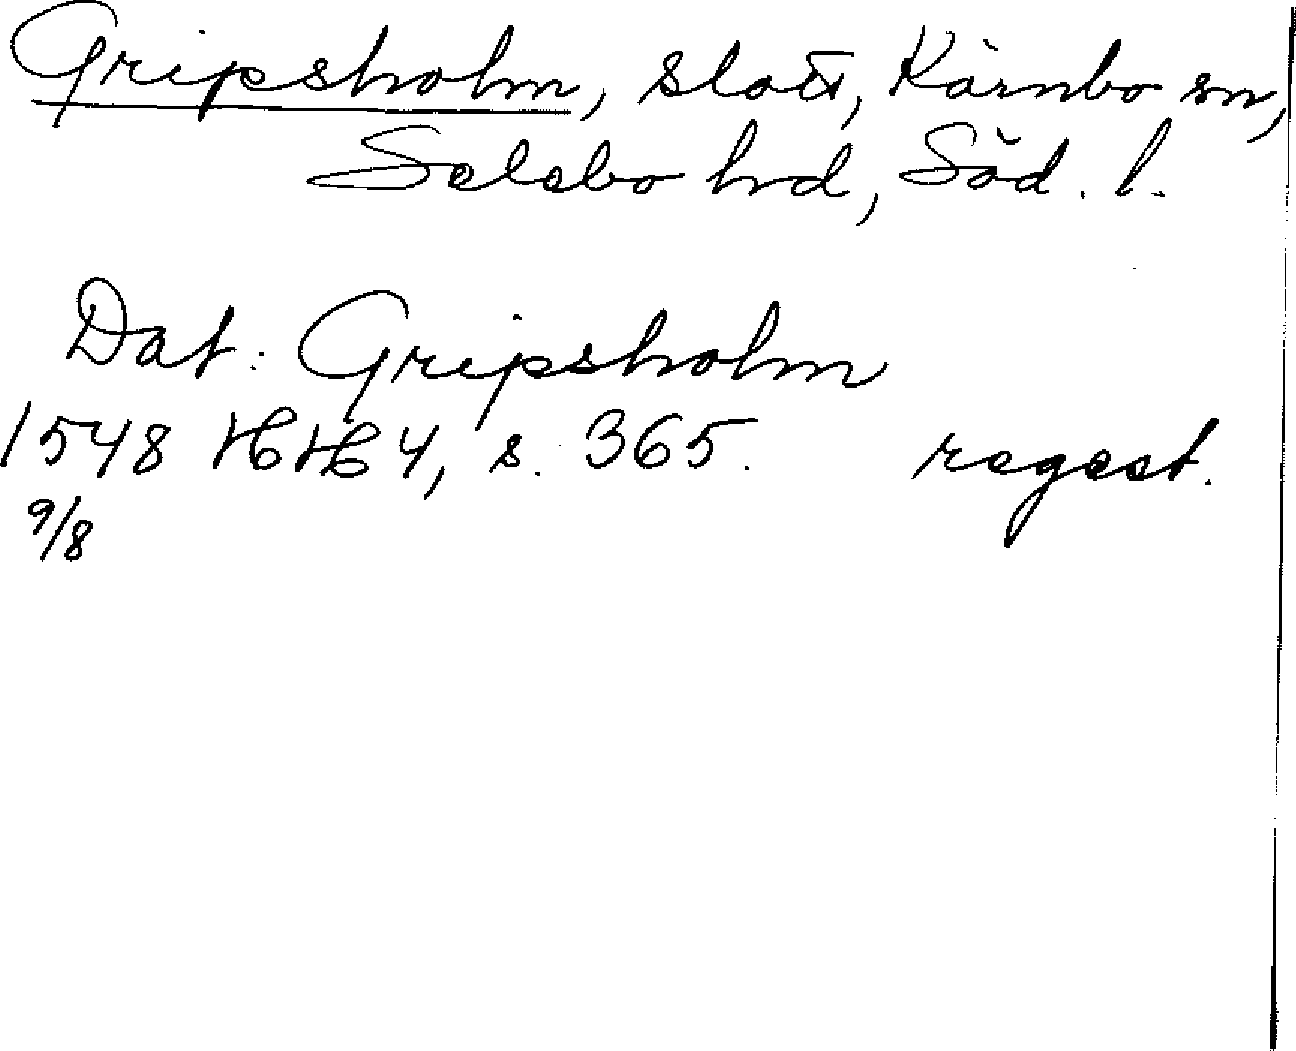 Gripsholm, slott, Kärnbo sn,
Selebo hd, Söd. l.
Dat. Gripsholm
1548 HH 4, s. 365. regest.
9/8